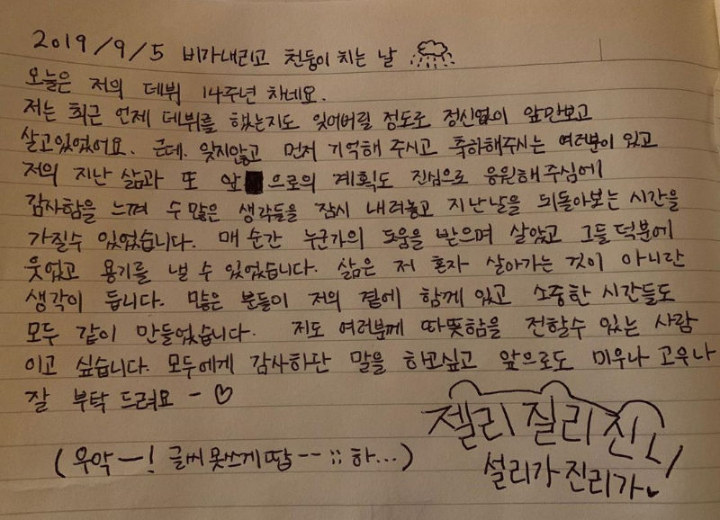 2019/9/5 비가내리고 천둥이 치는 날
오늘은 저의 데뷔 14주년 차네요.
저는 최근 언제 데뷔를 했는지도 잊어버릴 정도로 정신없이 앞만보고
살고있었어요. 근데. 잊지않고 먼저 기억해 주시고 축하해주시는 여러분이 있고
저의 지난 삶과 또 앞으로의 계획도 진심으로 응원해 주심에
감사함을 느껴 수 많은 생각들을 잠시 내려놓고 지난날을 되돌아보는 시간을
가질수 있었습니다. 매 순간 누군가의 도움을 받으며 살았고 그들 덕분에
웃었고 용기를 낼 수 있었습니다. 삶은 저 혼자 살아가는 것이 아니란
생각이 듭니다. 많은 분들이 저의 곁에 함께 있고 소중한 시간들도
모두 같이 만들었습니다. 저도 여러분께 따뜻함을 전할수 있는 사람
이고 싶습니다. 모두에게 감사하단 말을 하고싶고 앞으로도 미우나 고우나
잘 부탁 드려요 - ♡
젤리 질리 진리
설리가 진리가
(우악-! 글씨 못쓰게땁 -- ;; 하...)